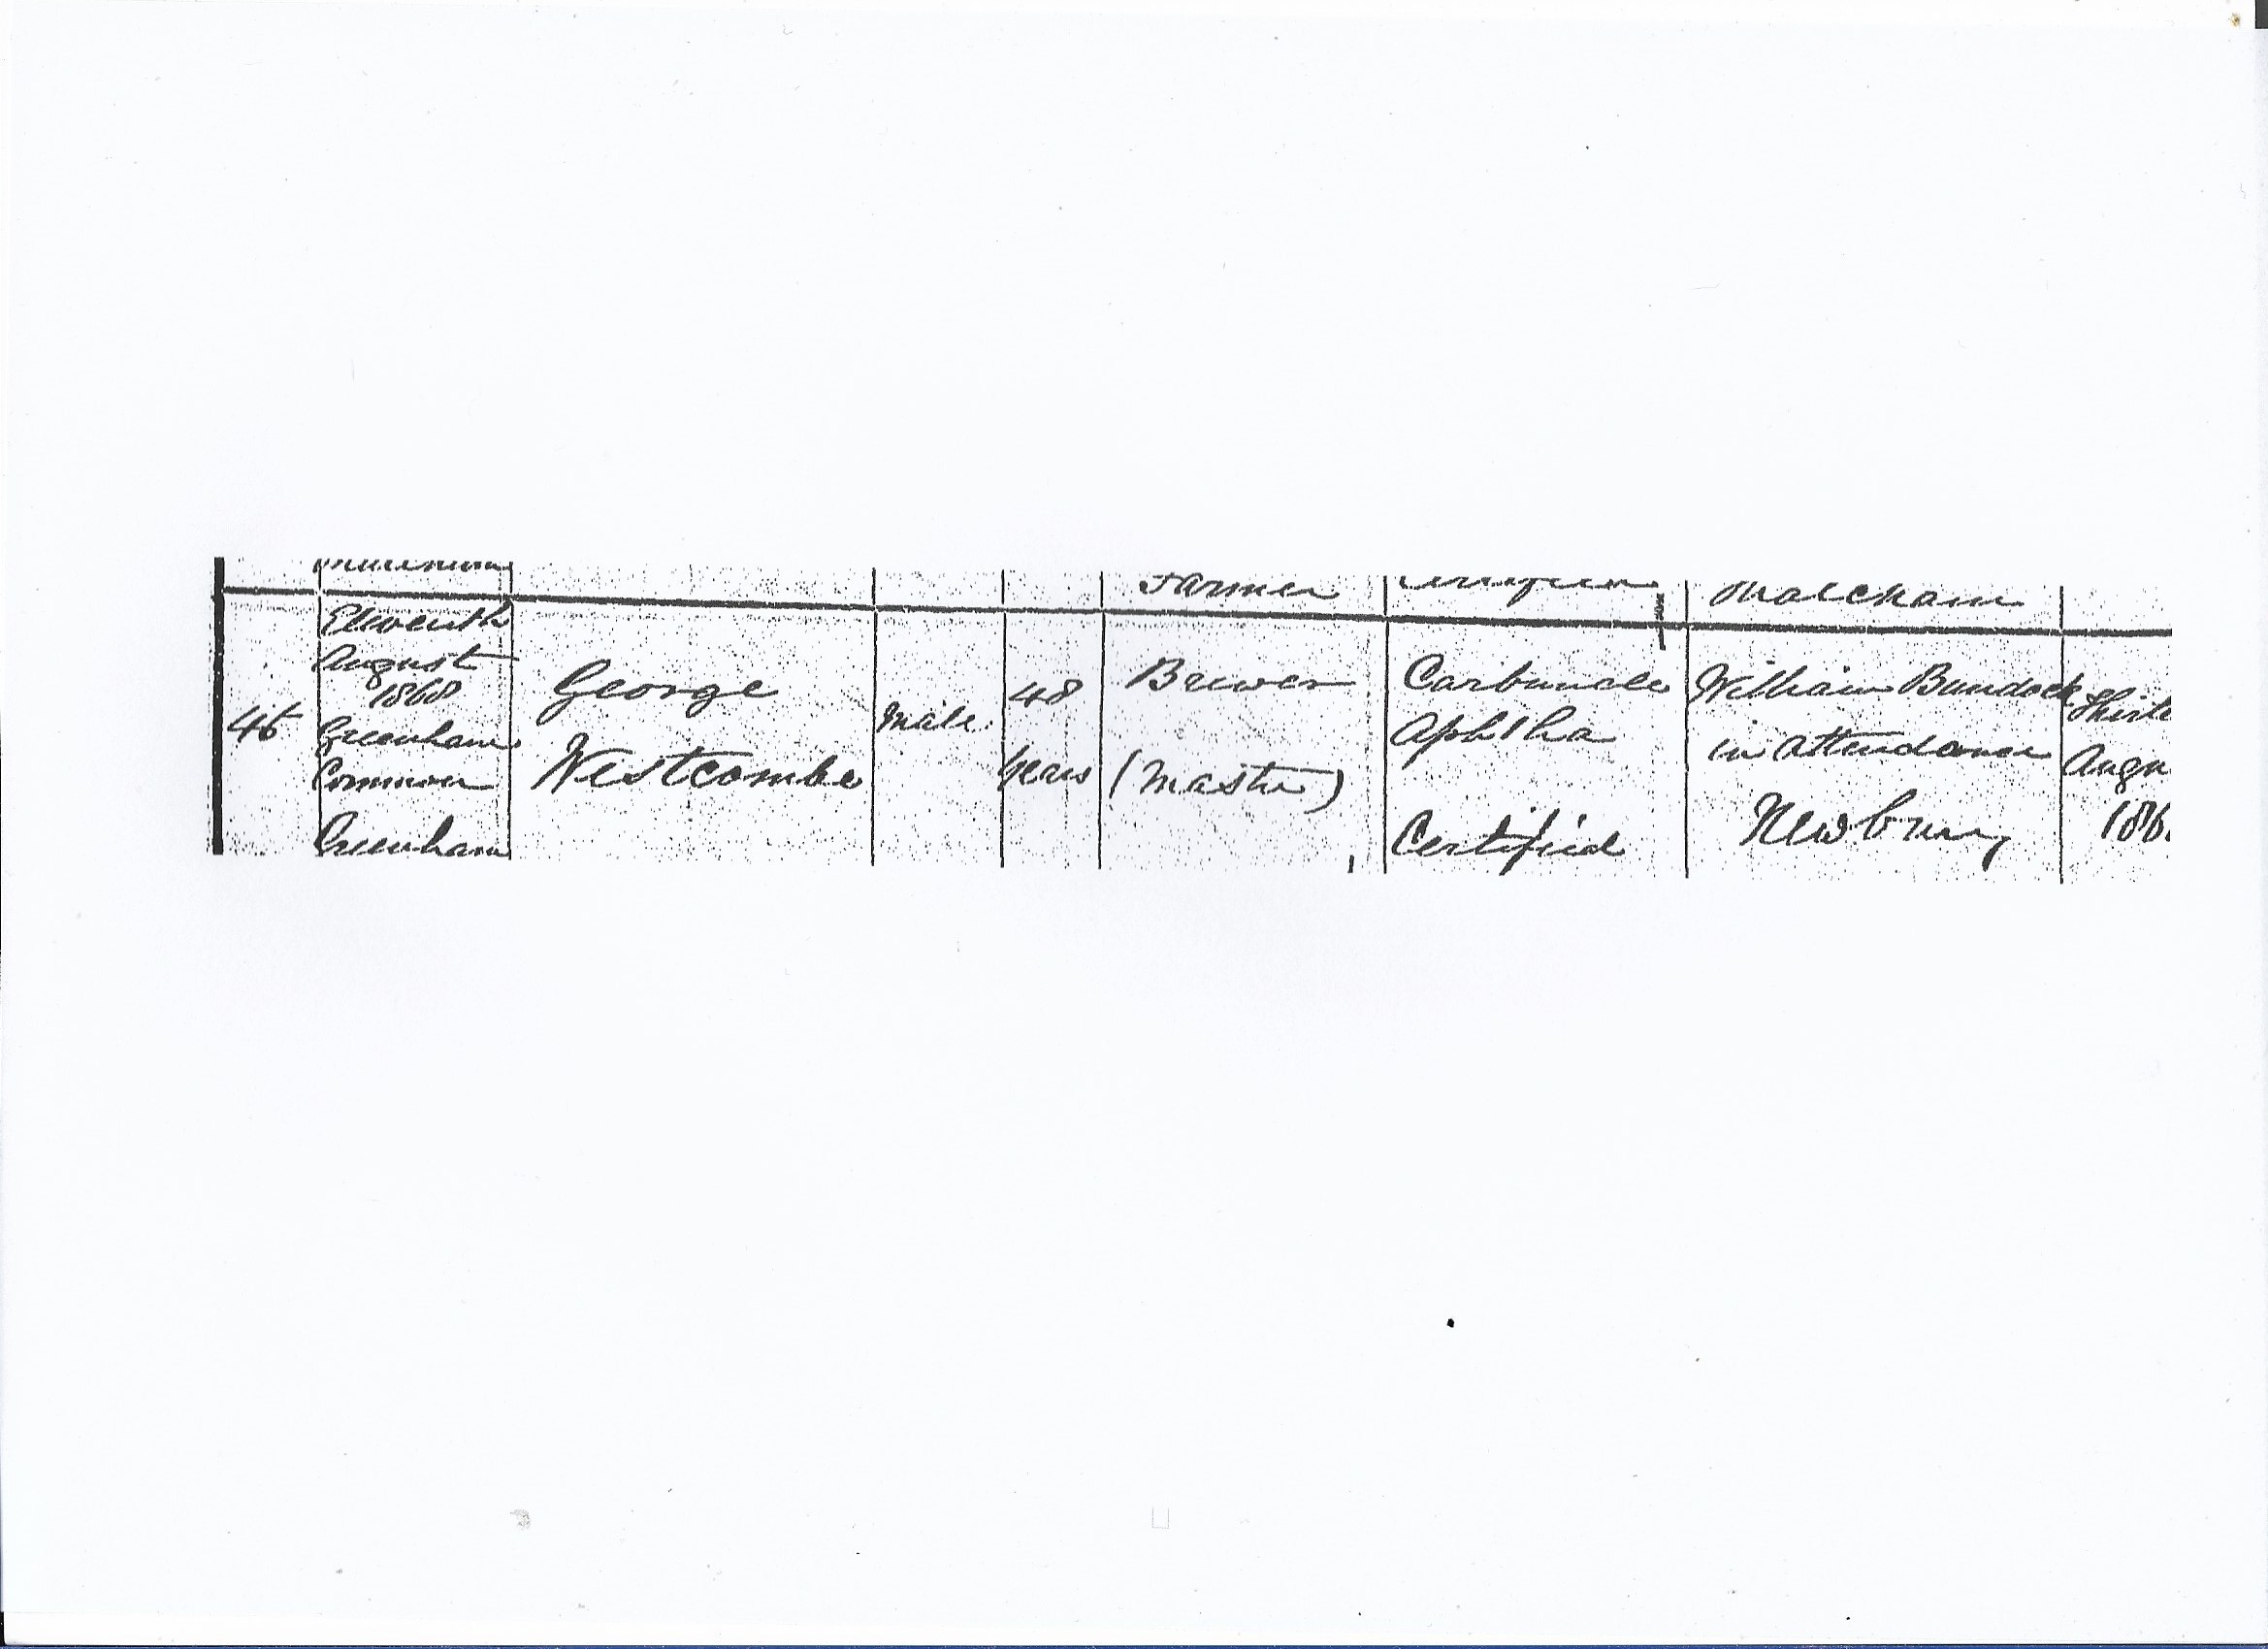 Farmer
46
Eleventh
August
1868
Greenham
Common
Greenham
George
Westcombe
Male
48
Years
Brewer
(Master)
Carbuncle
Aphtha
Certified
William Bundock
in attendance
Newbury
Augu
186